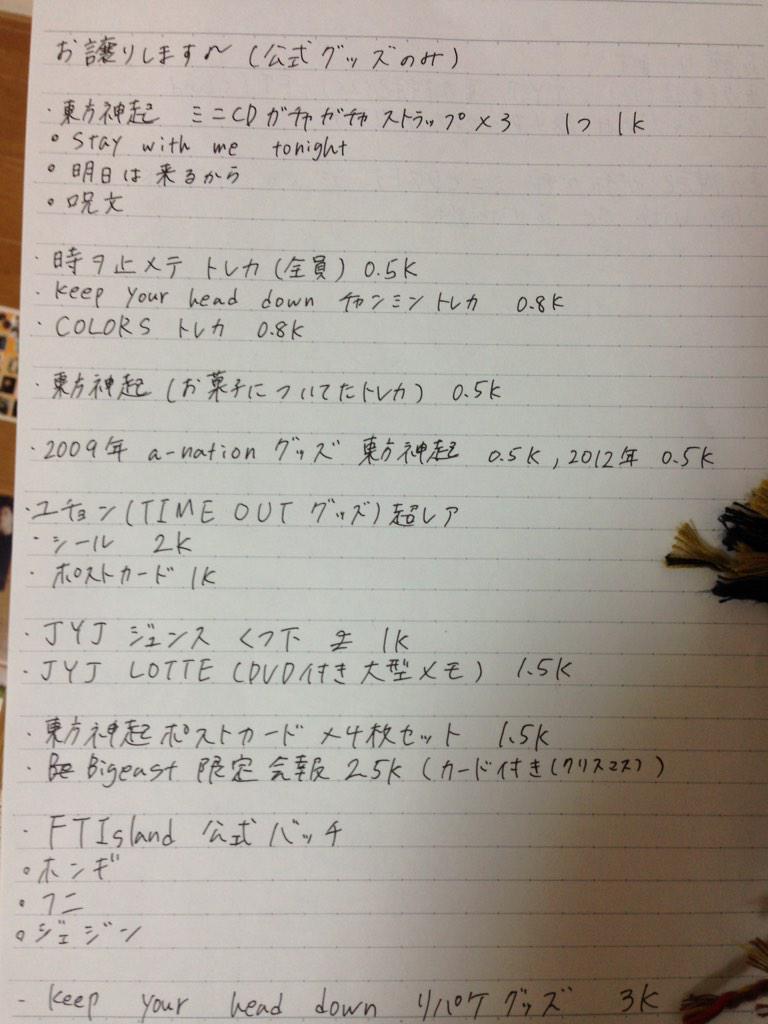 お譲りします〜(公式グッズのみ)
・東方神起 ミニCDガチャガチャ ストラップ×3 1つ 1K
• Stay with me tonight
• 明日は来るから
• 呪文
・時ヲ止メテ トレカ(全員) 0.5K
・Keep your head down チャンミン トレカ 0.8K
・COLORS トレカ 0.8K
・東方神起 (お菓子についてたトレカ) 0.5K
・2009年 a-nation グッズ 東方神起 0.5K, 2012年 0.5K
・ユチョン(TIME OUT グッズ)超レア
・シール 2K
・ポストカード 1K
・JYJ ジュンス くつ下 1K
・JYJ LOTTE (DVD付き 大型メモ) 1.5K
・東方神起 ポストカード ×4枚セット 1.5K
・Bigeast 限定会報 2.5K (カード付き(クリスマス))
・FTIsland 公式バッチ
• ホンギ
• フニ
• ジェジン
- Keep your head down リパケグッズ 3K